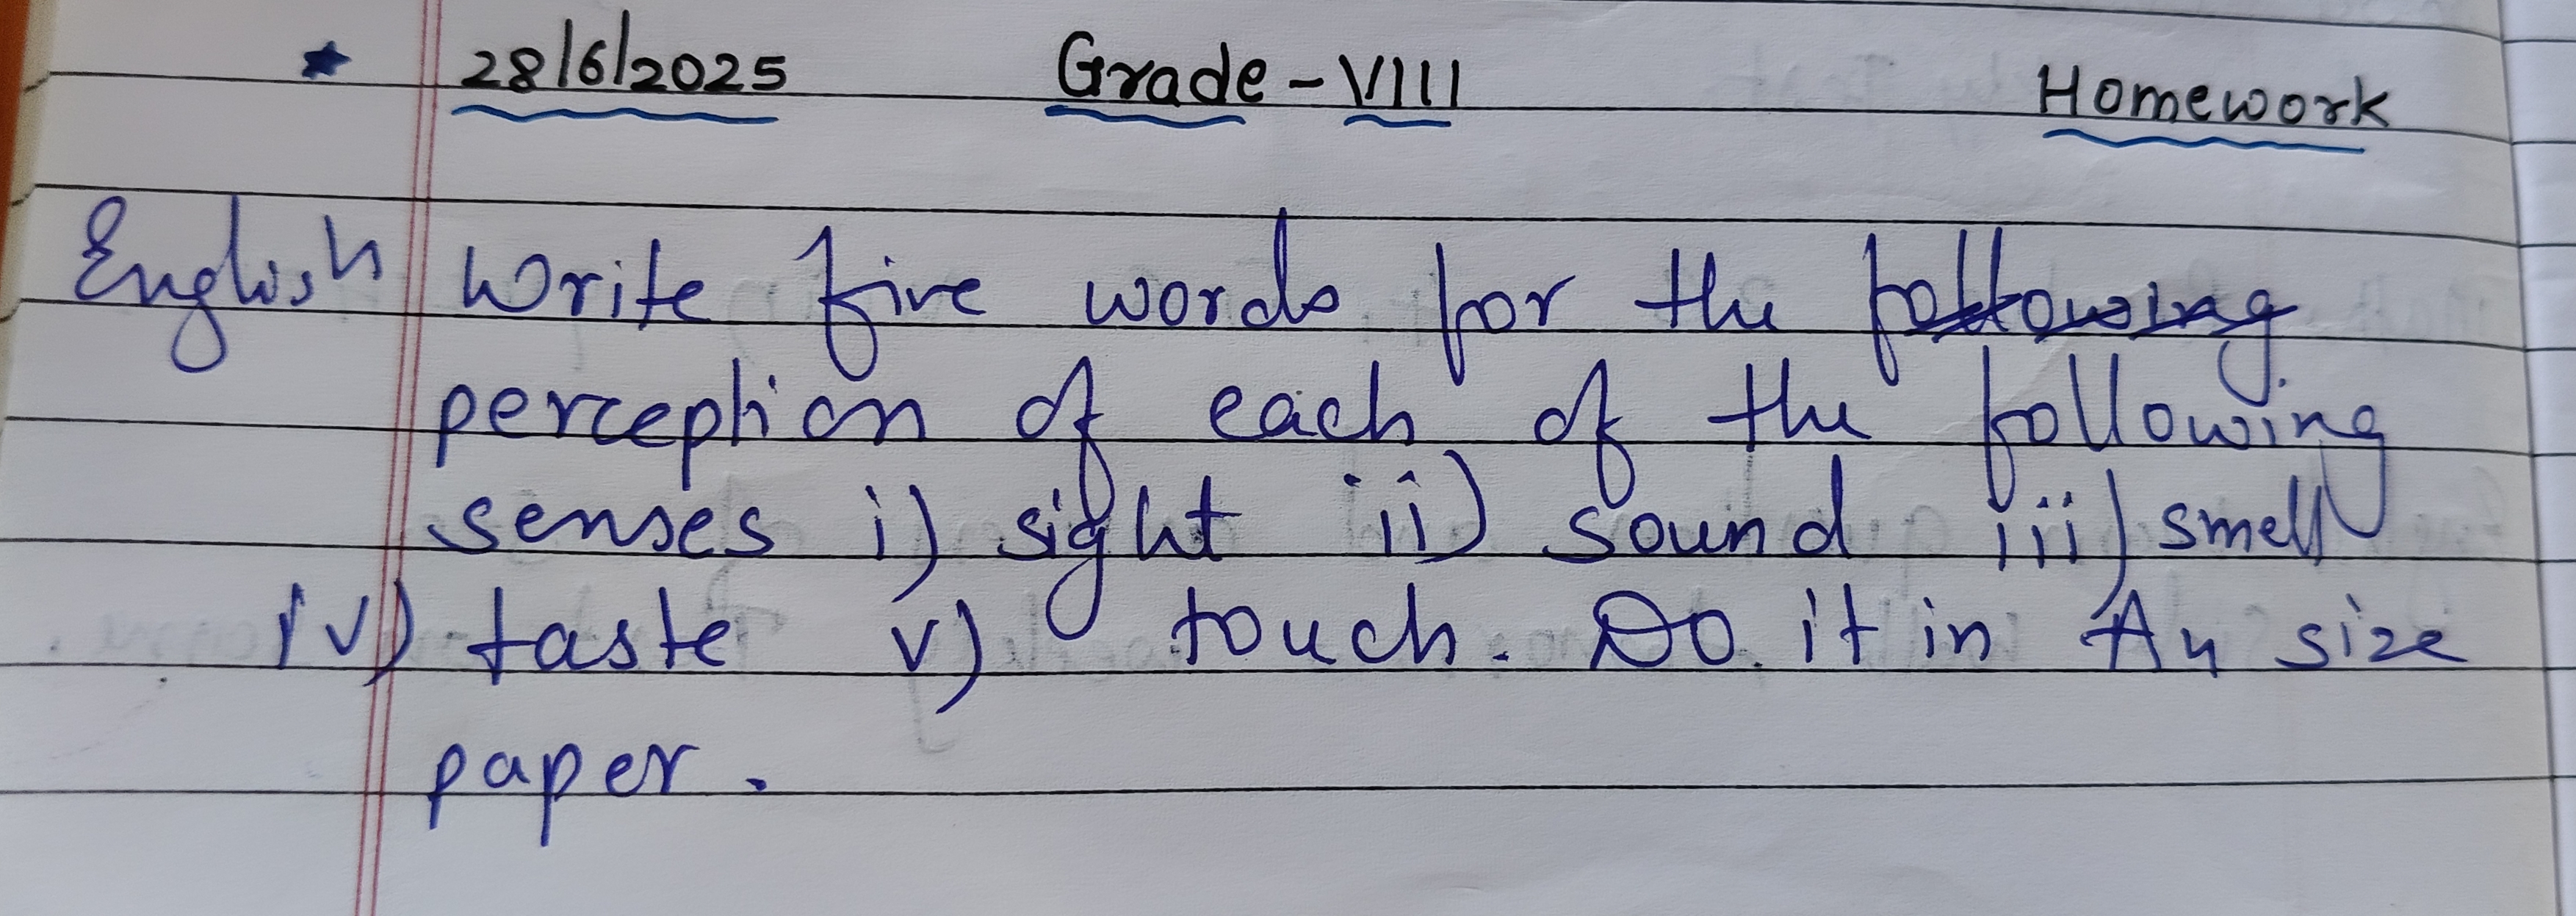 ★ 28/6/2025 Grade - VIII Homework
English Write five words for the following
perception of each of the following
senses i) sight ii) sound iii) smell
iv) taste v) touch. Do it in A4 size
paper.